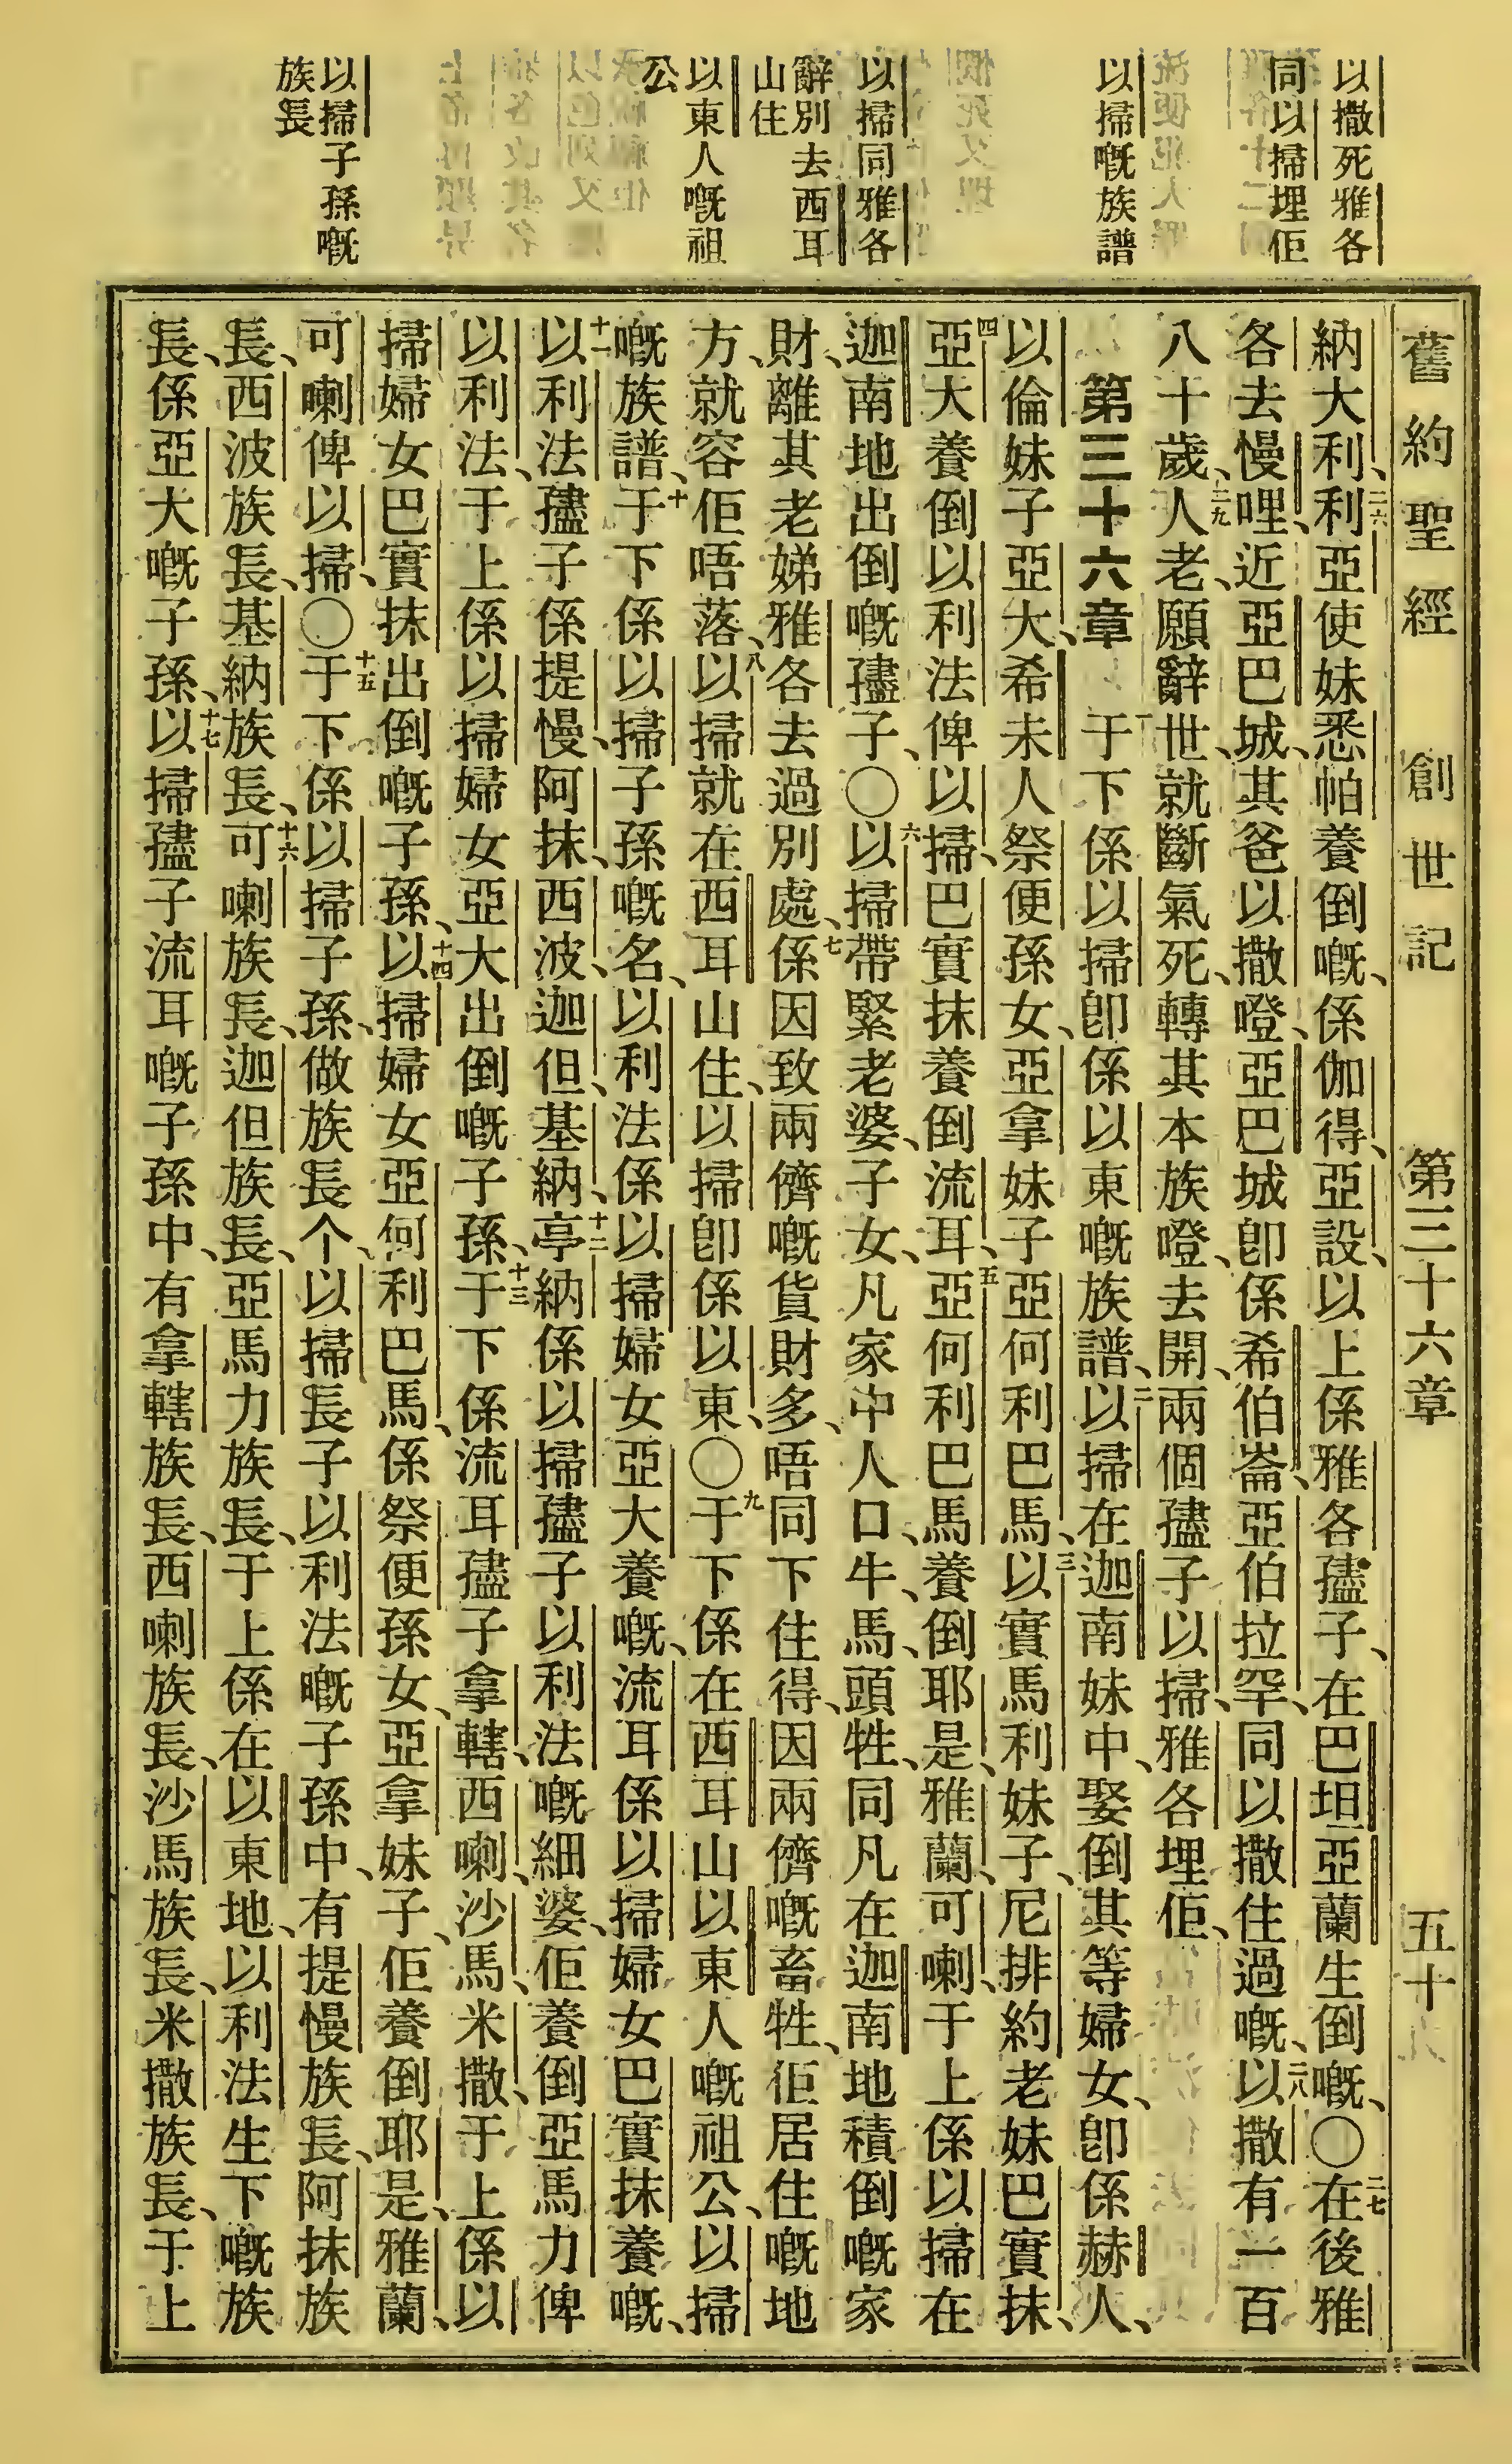 舊約聖經　創世記　第三十六章　五十
以撒死雅各
同以掃埋佢
以掃嘅族譜
以掃同雅各
辭別去西耳
山住
以東人嘅祖
公
以掃子孫嘅
族長
納大利、二六利亞使妹悉帕養倒嘅、係伽得、亞設、以上係雅各𡥧子、在巴坦亞蘭生倒嘅、〇二七在後雅
各去慢哩、近亞巴城、其爸以撒嶝、亞巴城卽係希伯崙、亞伯拉罕、同以撒住過嘅、二八以撒有一百
八十歲、二九人老、願辭世、就斷氣死、轉其本族嶝、去開、兩個𡥧子以掃、雅各埋佢、
第三十六章　一于下係以掃、卽係以東嘅族譜、二以掃在迦南妹中、娶倒其等婦女、卽係赫人、
以倫妹子亞大、希未人祭便孫女、亞拿妹子亞何利巴馬、三以實馬利妹子、尼排約老妹巴實抹、
四亞大養倒以利法俾以掃、巴實抹養倒流耳、五亞何利巴馬養倒耶是、雅蘭、可喇、于上係以掃在
迦南地出倒嘅𡥧子、〇六以掃帶緊老婆、子女、凡家中人口、牛、馬、頭牲、同凡在迦南地積倒嘅家
財、離其老娣雅各去過別處、七係因致兩儕嘅貨財多、唔同下住得、因兩儕嘅畜牲、佢居住嘅地
方、就容佢唔落、八以掃就在西耳山住、以掃卽係以東、〇九于下係在西耳山以東人嘅祖公、以掃
嘅族譜、十于下係以掃子孫嘅名、以利法係以掃婦女亞大養嘅、流耳係以掃婦女巴實抹養嘅、
十一以利法𡥧子係提慢、阿抹、西波、迦但、基納、十二亭納係以掃𡥧子以利法嘅細婆、佢養倒亞馬力俾
以利法、于上係以掃婦女亞大出倒嘅子孫、十三于下係流耳𡥧子拿轄、西喇、沙馬、米撒、于上係以
掃婦女巴實抹出倒嘅子孫、十四以掃婦女亞何利巴馬、係祭便孫女、亞拿妹子、佢養倒耶是、雅蘭、
可喇俾以掃、〇十五于下係以掃子孫、做族長个、以掃長子以利法嘅子孫中、有提慢族長、阿抹族
長、西波族長、基納族長、十六可喇族長、迦但族長、亞馬力族長、于上係在以東地、以利法生下嘅族
長、係亞大嘅子孫、十七以掃𡥧子流耳嘅子孫中、有拿轄族長、西喇族長、沙馬族長、米撒族長、于上